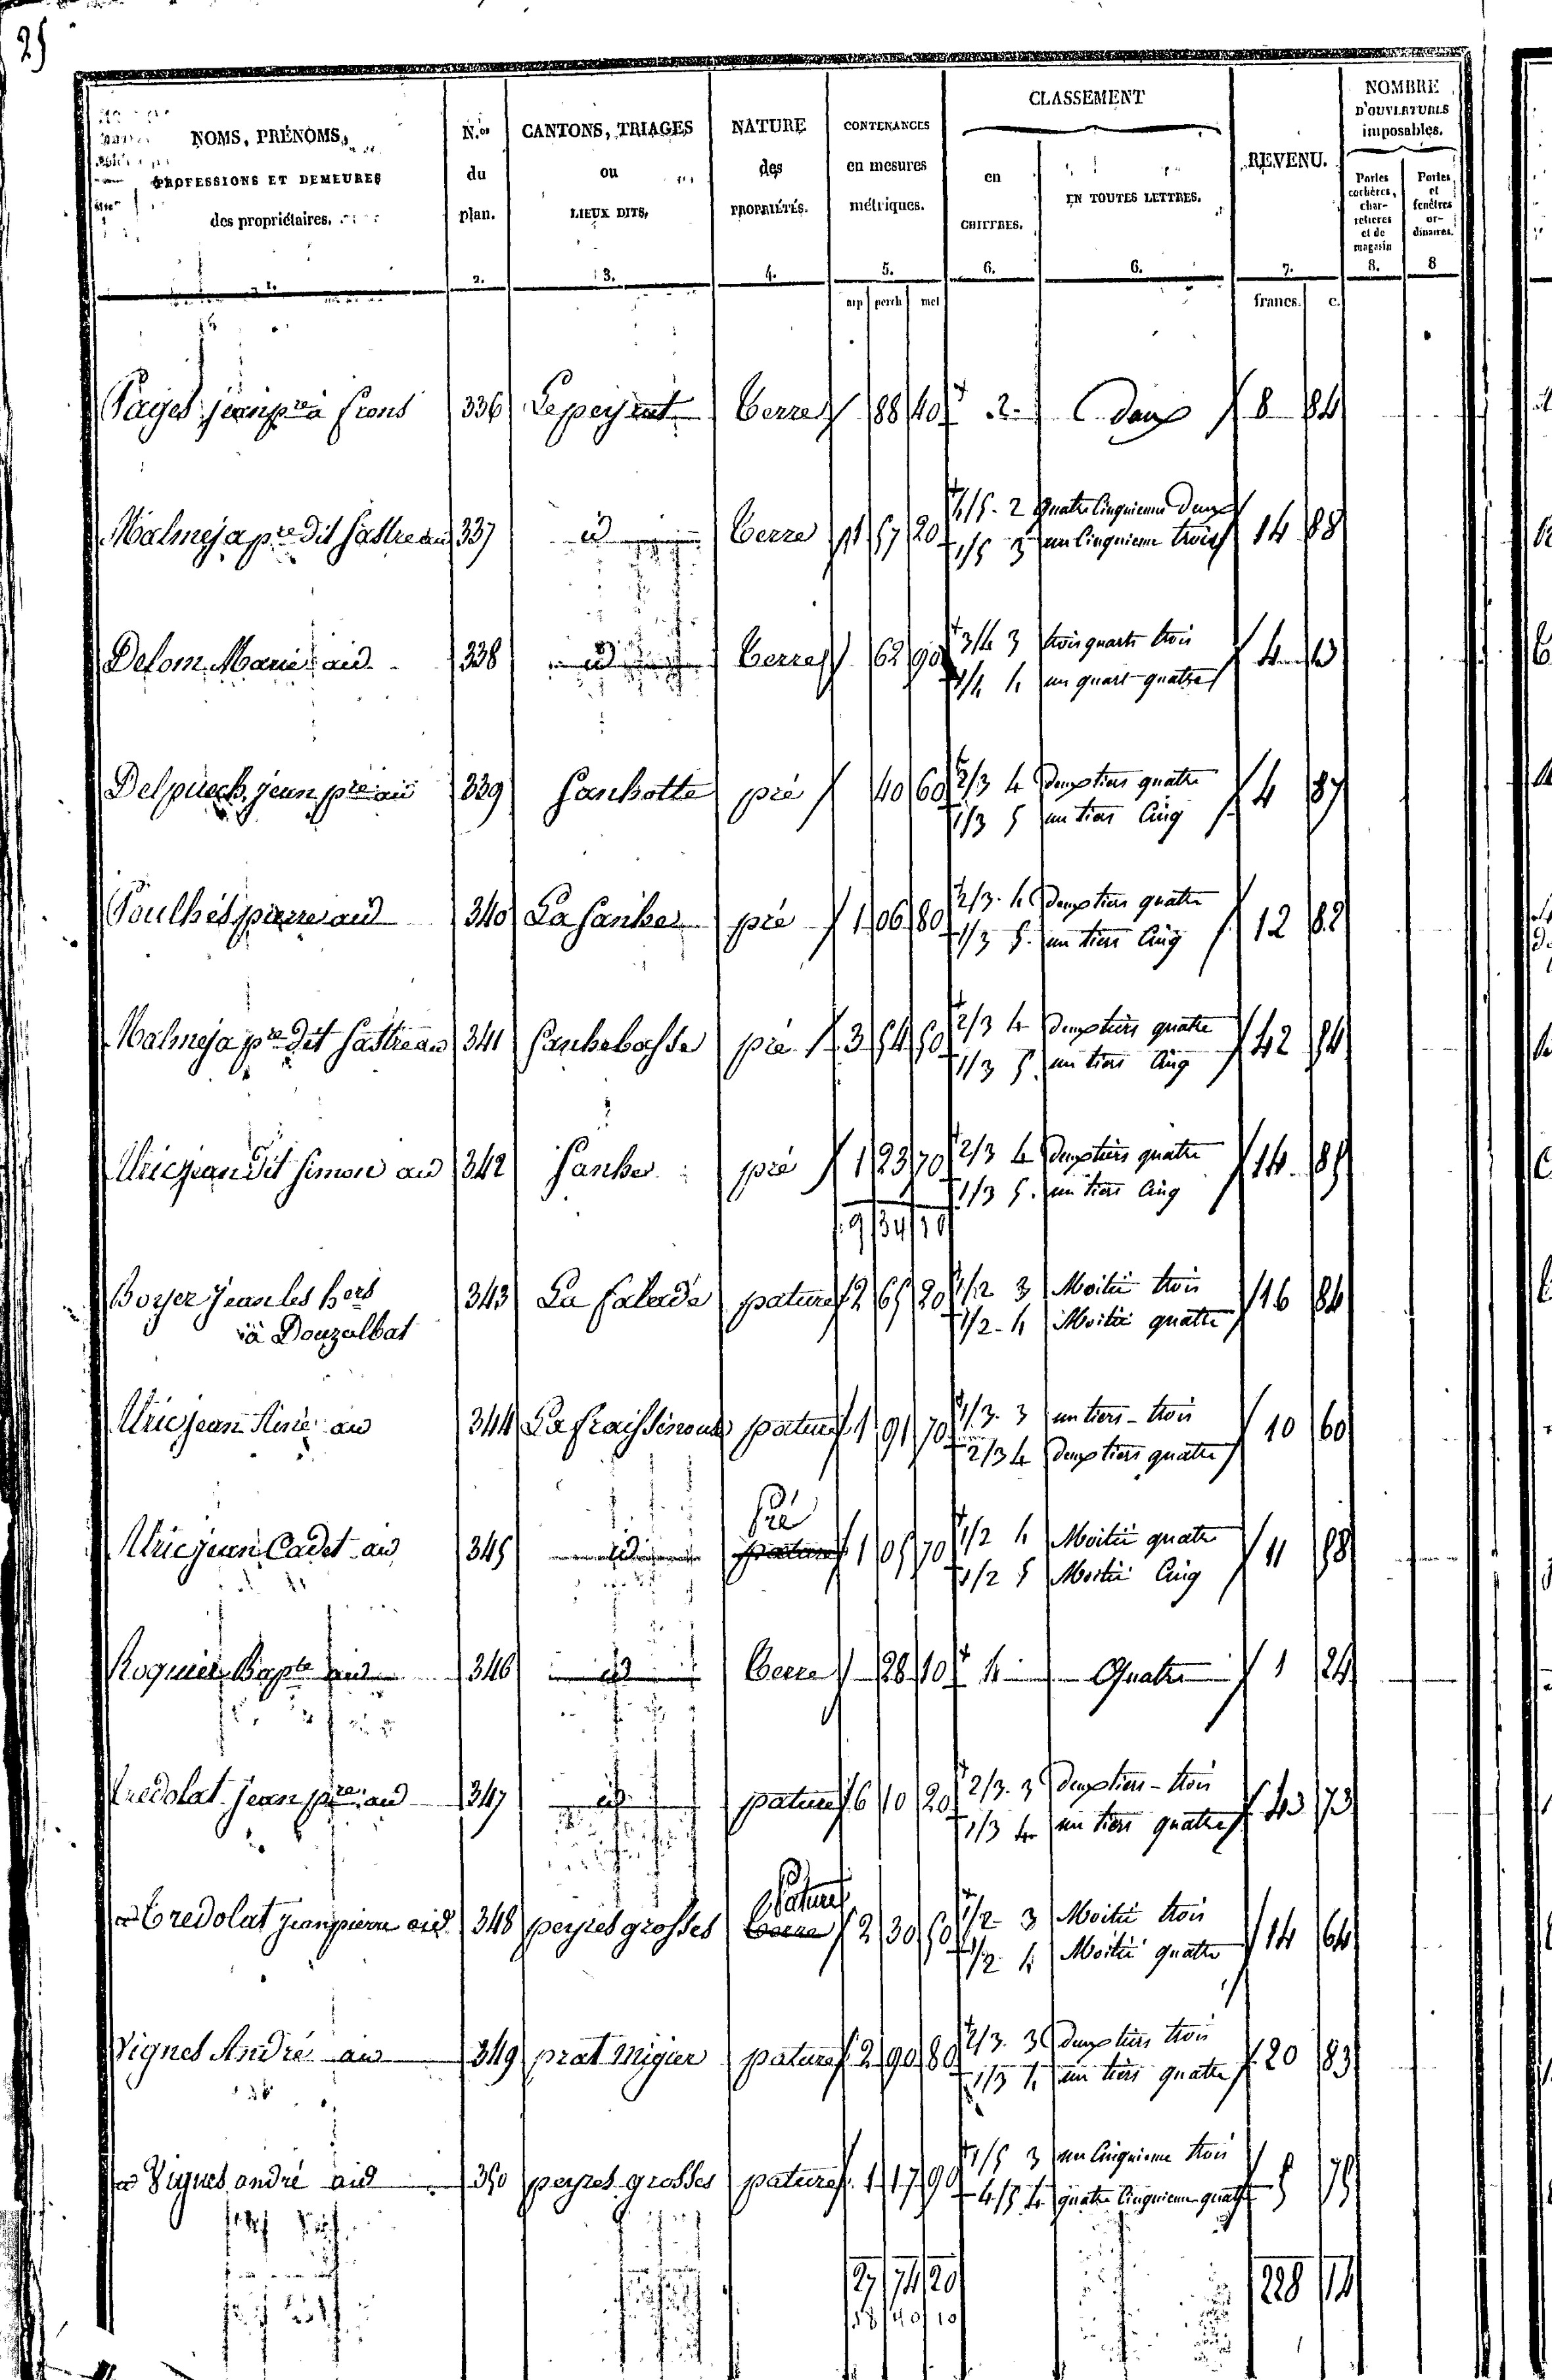 25
NOMS, PRÉNOMS,
PROFESSIONS ET DEMEURES
des propriétaires.
1.
N.os
du
plan.
2.
CANTONS, TRIAGES
ou
LIEUX DITS,
3.
NATURE
des
PROPRIÉTÉS.
4.
CONTENANCES
en mesures
métriques.
5.
arp perch met
CLASSEMENT
en
CHIFFRES.
6.
EN TOUTES LETTRES.
6.
REVENU.
7.
francs. c.
NOMBRE
D'OUVERTURES
imposables.
Portes
cochères,
char-
retières
et de
magasin
8.
Portes
et
fenêtres
or-
dinaires.
8
Pages jean pre à frons 336 Le peyrat Terre 88 40 2 deux 8 84
Malmeja pre dit Sastre aud 337 id Terre 1 57 20 4/5. 2 quatre Cinquieme deux 14 88
1/5 3 un Cinquieme trois
Delom Marie aid 338 id Terre 62 90 3/4 3 trois quarts trois 4 13
1/4 4 un quart quatre
Delpuech jean pre aid 339 Sanhotte pré 40 60 2/3 4 deux tiers quatre 4 87
1/3 5 un tiers Cinq
Poulhés pierre aud 340 La Sanhe pré 1 06 80 2/3. 4 deux tiers quatre 12 82
1/3 5. un tiers Cinq
Malmeja pre dit Sastre au 341 Sanhebasse pré 3 54 50 2/3 4 deux tiers quatre 42 54
1/3 5. un tiers Cinq
Uric jean dit Simon au 342 Sanhe pré 1 23 70 2/3 4 deux tiers quatre 14. 85
1/3 5. un tiers Cinq
9 34 10
Boyer jean les hers 343 La falade pature 2 65 20 1/2 3 Moitié trois 16 84
à Douzalbat 1/2 4 Moitié quatre
Uric jean Ainé au 344 La fraissinouse pature 1 91 70 1/3. 3 un tiers - trois 10 60
2/3 4 deux tiers quatre
Pré
Uric jean Cadet au 345 id pature 1 05 70 1/2 4 Moitié quatre 11 98
1/2 5 Moitié Cinq
Roquier Bapte aud 346 id Terre 28 10 4 Quatre 1 24
Credolat jean pre aud 347 id pature 6 10 20 2/3. 3 deux tiers - trois 43 73
1/3 4 un tiers quatre
Pature
Credolat jean pierre aid 348 peyres grosses terre 2 30 50 1/2 3 Moitié trois 14 64
1/2 4 Moitié quatre
Vignes André au 349 prat Migier pature 2 90 80 2/3. 3 deux tiers trois 20 83
1/3 4 un tiers quatre
Vignes andré aid 350 peyres grosses pature 1 17 90 1/5 3 un Cinquieme trois 5 75
4/5 4 quatre Cinquieme quatre
27 74 20 228 14
18 40 10